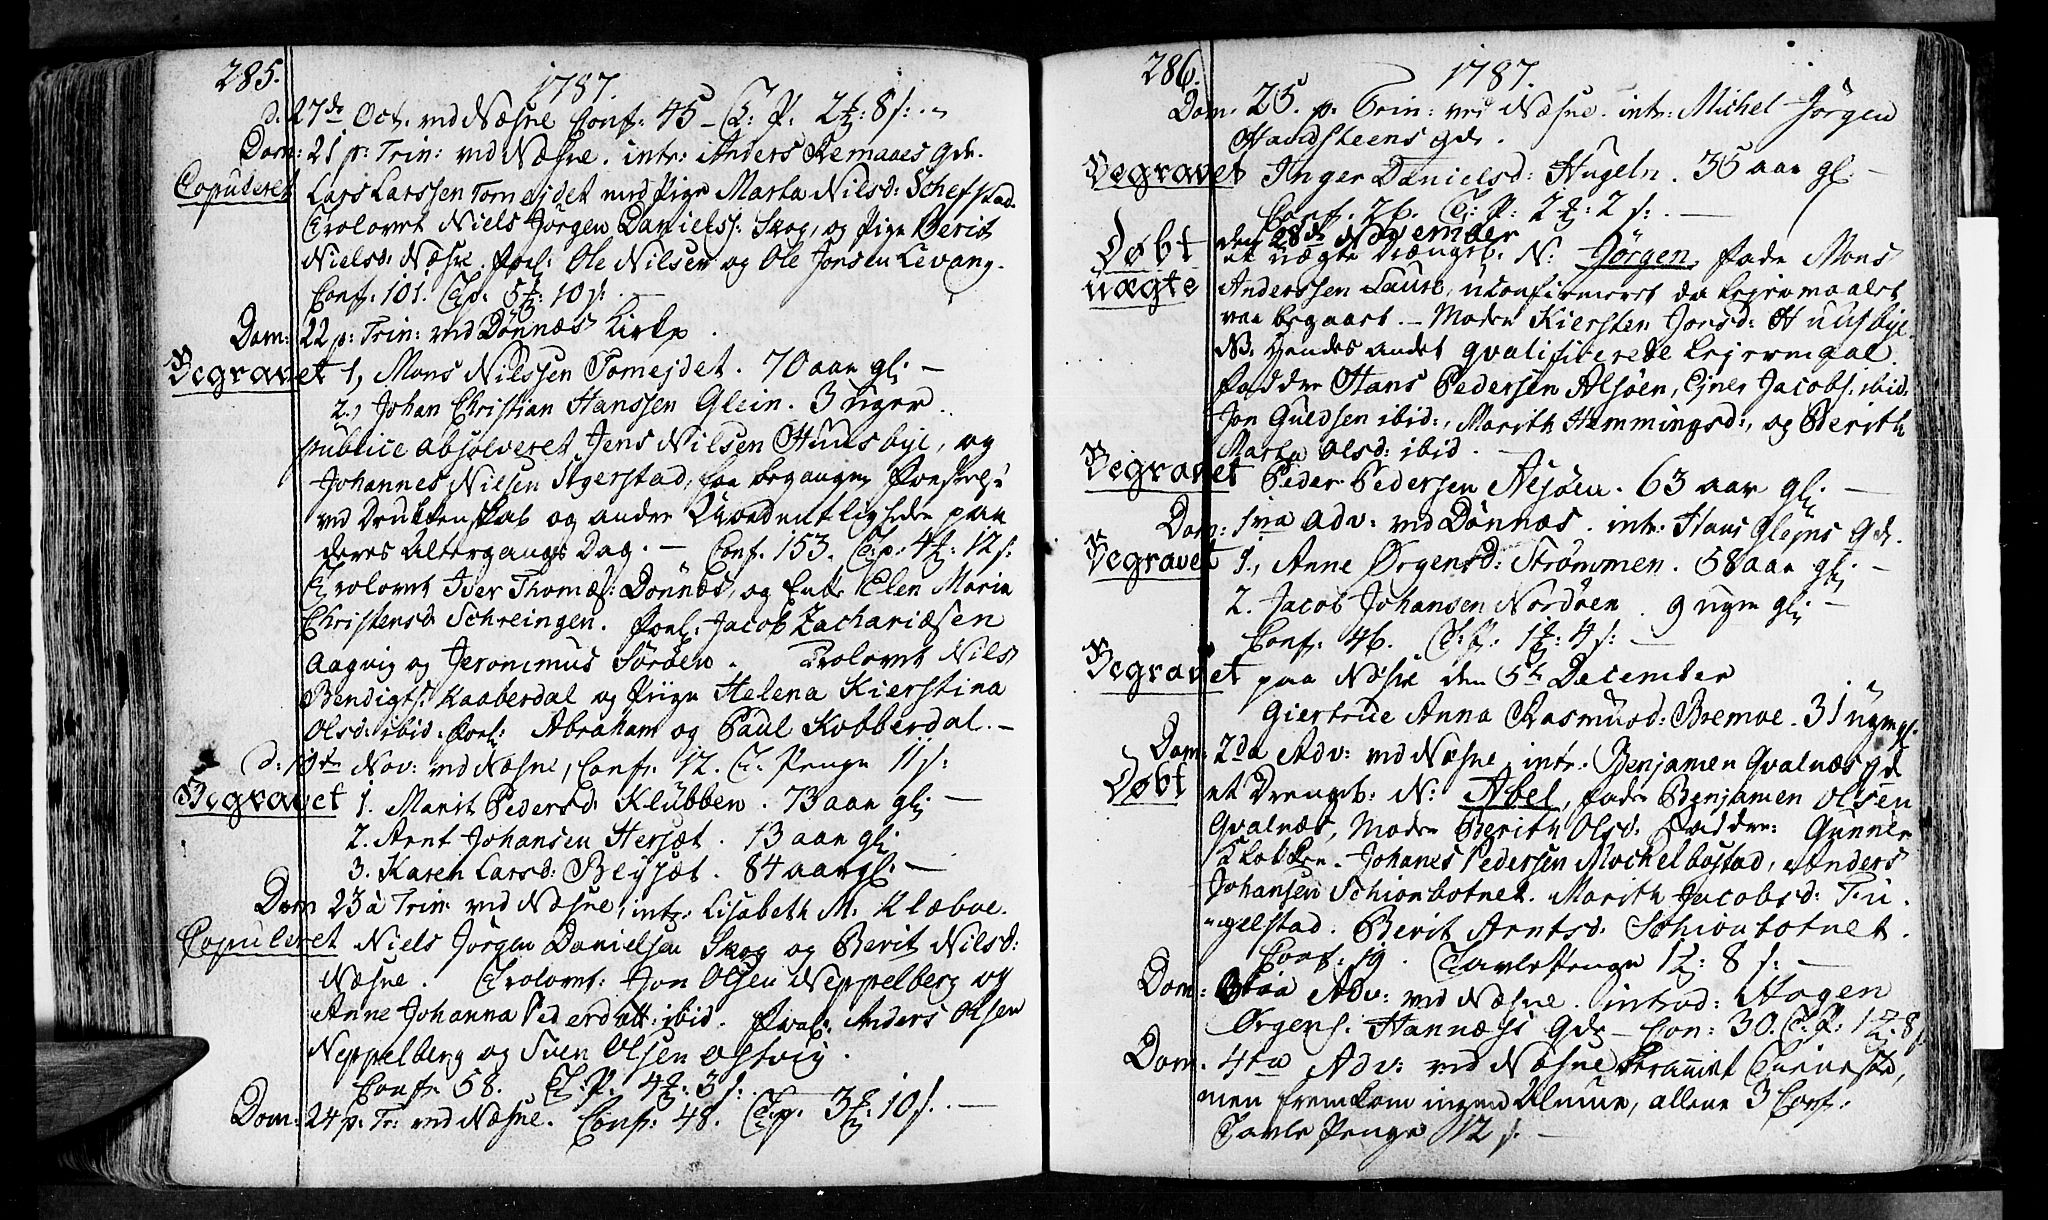 285.
1787.
d: 27de Oct. ved Næsne Conf: 45 – T: P. 2 8 s:
Dom: 21 p: Trin: ved Næsne. intr: Anders Remaaes qde.
Copuleret Lars Larssen Tomejdet med Pige Marta Nilsd: Schefstad.
Trolovet Niels Jörgen Daniels: Skog, og Pige Berit
Nielsd: Næsne. Forl: Ole Nilsen og Ole Jonsen Levang.
Conf: 101. T.p: 5 : 10 s:
Dom: 22 p: Trin: ved Dönnæs Kirke.
Begravet 1, Mons Nilssen Tomejdet. 70 aar gl: –
2., Johan Christian Hanssen Glein. 3 uger
publice absolveret Jens Nilsen Huusbye, og
Johannes Nilsen Stgerstad, for begangen
ved Drukkenskab og andre Uordentligheder paa
deres Altergangs Dag. – Conf. 153. T:p: 4 : 12 s:
Trolovet Iver Thomæs: Dönnæs, og Enke Elen Maria
Christensd: Schreingen. Forl: Jacob Zachariæsen
Aagvig og Jeronimus Söröen. Trolovet Nils
Bendigts: Kaaberdal og Piige Helena Kierstina
Olsd: ibid: Forl: Abraham og Paul Kobberdal. –
d: 10de Nov: ved Næsne, Conf: 12. T: Penge 11 s:
Begravet 1. Marit Pedersd: Klübben. 73 aar gl: –
2. Arnt Johansen Hersæt. 13 aar gl:
3. Karen Larsd: Beysæt. 84 aar gl: –
Dom 23 à Trin: ved Næsne, intr: Lisabeth M. Klæboe.
Copuleret Niels Jörgen Danielsen Skog og Berit Nilsd:
Næsne. Trolovet: Jon Olsen Neppelberg og
Anne Johanna Pedersdatt: ibid. Forl: Anders Olsen
Neppelberg og Sven Olsen
Conf: 58. T: P. 4 : 3 s:
Dom: 24 p: Tr: ved Næsne. Conf: 48. T:p. 3 : 10 s. –
286.
1787.
Dom. 25. p: Trin: ved Næsne. intr: Michel Jörgen
Havdsteens qde.
Begravet Inger Danielsd: Hugeln. 35 aar gl: –
Conf. 26. T: P: 2 : 2 s: –
Döbt den 28de November
uægte et uægte Drængeb: N: Jörgen, Fader Mons
Anderssen, uconfirmeret da Lejermaalet
var begaaet. – Moder Kiersten Jonsd: Huusbye.
NB. hendes andet qvalificerede Lejermaal.
Faddre Hans Pedersen Alsöen, Ejner Jacobs: ibid:
Jon Guldsen ibid:, Marith Hemmingsd:, og Berith
Marta Olsd: ibid.
Begravet Peder Pedersen Alsöen. 63 aar gl: –
Dom: 1ma Adv: ved Dönnæs. intr: Hans Glejns Qde.
Begravet 1., Anne Örgensd: Strömmen. 58 aar gl: –
2. Jacob Johansen Nordöen. 9 uger gl: –
Conf: 46. T:P: 1 : 4 s: –
Begravet paa Næsne den 5te December
Giertrue Anna Rasmusd: Bremoe. 31 uger gl.
Dom: 2da Adv: ved Næsne, intr: Benjamen Qvalnæs qde
Döbt et Drengeb: N: Abel, Fader Benjamen Olsen
Qvalnæs, Moder Berith Olsd: Faddre: Gunner
Klokker. Johanes Pedersen Mochelbostad, Anders
Johansen Schionbotnet. Marith Jacobsd: Fu-
gelstad. Berit Arntsd: Schionbotnet.
Conf: 19. TavlePenge 1 : 8 s: –
Dom: 3tia Adv: ved Næsne. introd: Hogen
Örgens: Hannæs's Qde – Con: 30. T: P: 1 : 8 s
Dom. 4ta Adv: ved Næsne
men fremkom ingen Almue, allene 3 Conf:
Tavle Penge 12 s. –